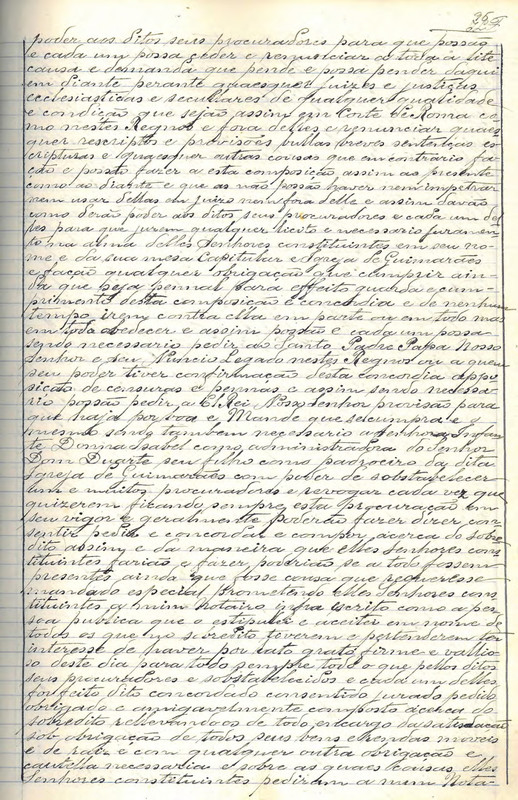 poder aos ditos seus procuradores para que possão
e cada um possa ceder e renunciar a toda a lite
causa e demanda que pende e possa pender daqui
em diante perante quaesquer juizes e justiças
ecclesiasticas e seculares de qualquer qualidade
e condição que sejão assim em Corte de Roma co-
mo nestes Regnos e fora delles e renunciar quaes
quer rescriptos e provisões bullas breves sentenças es-
cripturas e quaesquer outras cousas que em contrário fa-
ção e possão fazer a esta composição assim ao presente
como ao diante e que as não possão haver nem impetrar
nem usar dellas em juizo nem fora delle e assim davão
como derão poder aos ditos seus procuradores e cada um del-
les para que jurem qualquer licito e necessario juramen-
to na alma delles Senhores constituintes em seu no-
me e da sua mesa Capitular e Igreja de Guimarães
e fação qualquer obrigação que cumprir ain-
da que seja pennal para effeito guarda e cum-
primento desta composição e concordia e de nenhum
tempo irem contra ella em parte ou em todo mas
em todo obedecer e assim possão e cada um possa
sendo necessario pedir ao Santo Padre Papa Nosso
Senhor e seu Nuncio Legado nestes Regnos ou a quem
seu poder tiver confirmação desta concordia appo-
sição de censuras e pennas e assim sendo necessa-
rio possão pedir a El Rei Nosso Senhor provisão para
que haja por boa e Mande que se cumpra e o
mesmo sendo tambem necessario a Senhora Infan-
te Donna Isabel como administradora do Senhor
Dom Duarte seu filho como padroeiro da dita
Igreja de Guimarães com poder de sobstabelecer
um e muitos procuradores e revogar cada vez que
quizerem ficando sempre esta procuração em
seu vigor e geralmente poderão fazer dizer con-
sentir pedir e concordar e compor acerca do sobre
dito assim e da maneira que elles Senhores cons
tituintes farião e fazer poderião se a todo fossem
presentes ainda que fosse cousa que requeresse
mandado especial prometendo elles Senhores cons
tituintes a mim Notairo infra escrito como a pes-
soa publica que o estipulei e aceitei em nome de
todos os que no sobredito tiverem e pertenderem ter
interesse de haver por rato grato firme e vallio-
so deste dia para todo sempre todo o que pellos ditos
seus procuradores e sobstabelecidos e cada um delles
for feito dito concordado consentido jurado pedido
obrigado e amigavelmente composto acerca do
sobredito relevando-os de todo encargo da satisdação
sob obrigação de todos seus bens e rendas moveis
e de raiz e com qualquer outra obrigação e
cautella necessaria e sobre as quaes cousas elles
Senhores constituintes pediram a mim Nota-